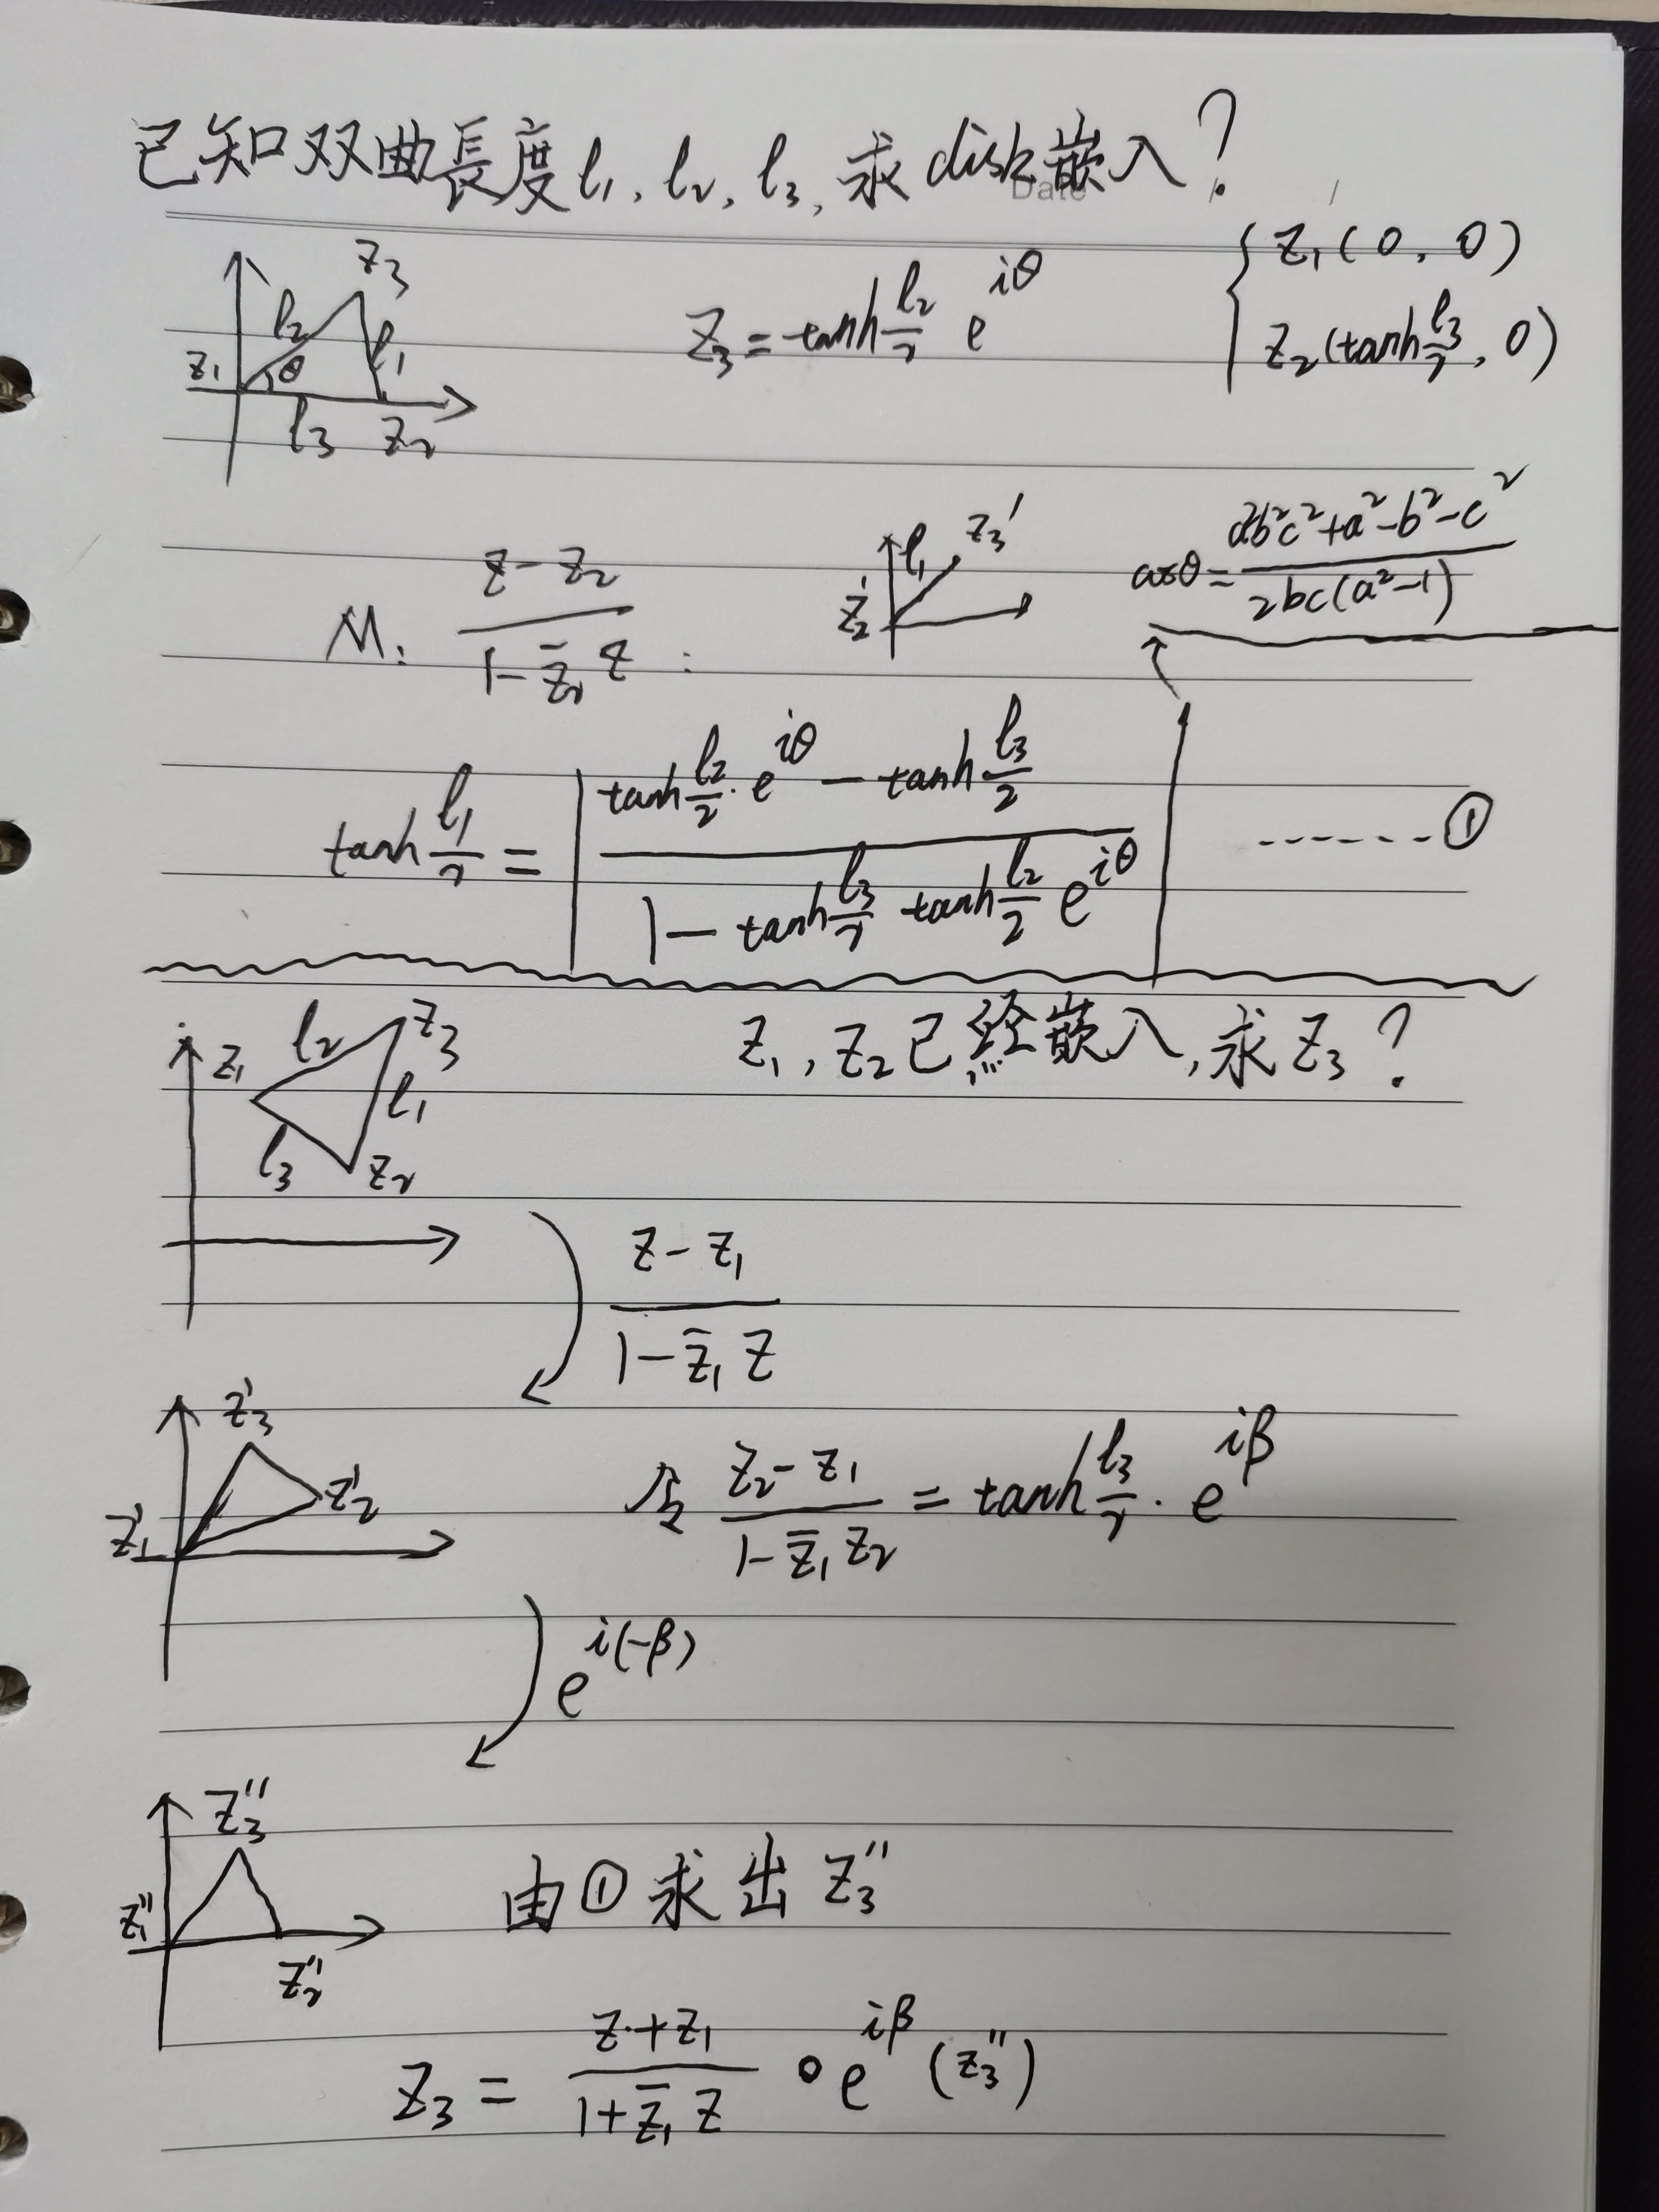 已知双曲長度 l₁, l₂, l₃, 求disk嵌入?
Date
z₃
l₂
l₁
z₁
θ
l₃
z₂
z₃ = tanh l₂/2 e^{iθ}
{ z₁(0, 0)
z₂(tanh l₃/2, 0)
M: (z - z₂)/(1 - z̄₂ z) :
z₃'
l₁
z₂'
cosθ = (a²b²c² + a² - b² - c²)/(2bc(a² - 1))
tanh l₁/2 = | (tanh l₂/2 · e^{iθ} - tanh l₃/2)/(1 - tanh l₃/2 tanh l₂/2 e^{iθ}) | ------ ①
z₁, z₂已经嵌入, 求z₃?
z₁
l₂
z₃
l₁
l₃
z₂
(z - z₁)/(1 - z̄₁ z)
z₃'
z₂'
z₁'
令 (z₂ - z₁)/(1 - z̄₁ z₂) = tanh l₃/2 · e^{iβ}
e^{i(-β)}
z₃''
z₁''
z₂''
由①求出 z₃''
z₃ = (z + z₁)/(1 + z̄₁ z) ∘ e^{iβ} (z₃'')